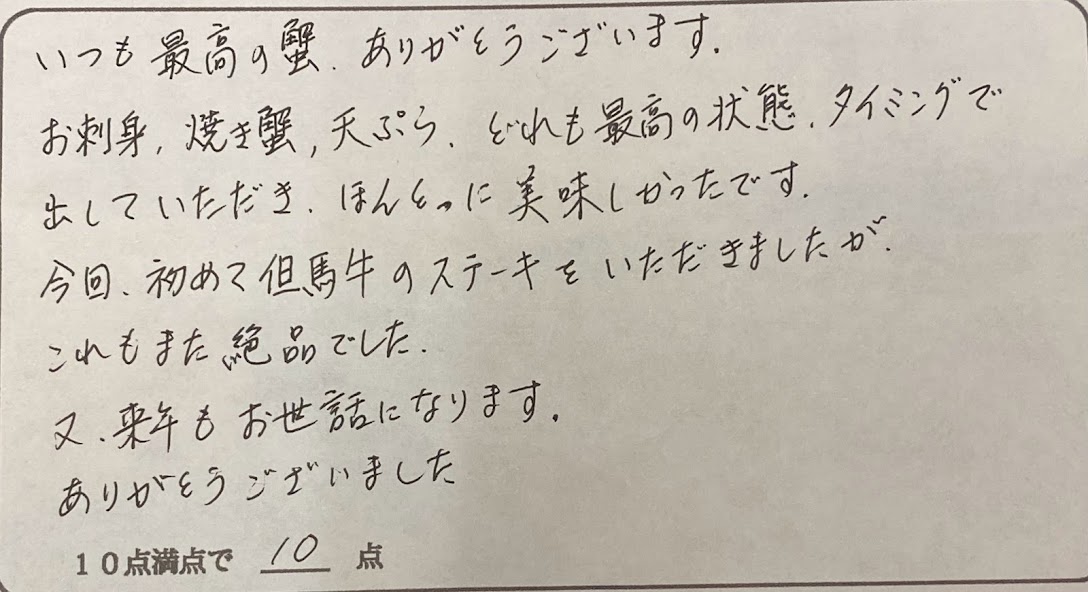 いつも最高の蟹、ありがとうございます。
お刺身、焼き蟹、天ぷら、どれも最高の状態、タイミングで
出していただき、ほんとっに美味しかったです。
今回、初めて但馬牛のステーキをいただきましたが、
これもまた絶品でした。
又、来年もお世話になります。
ありがとうございました
10点満点で 10 点